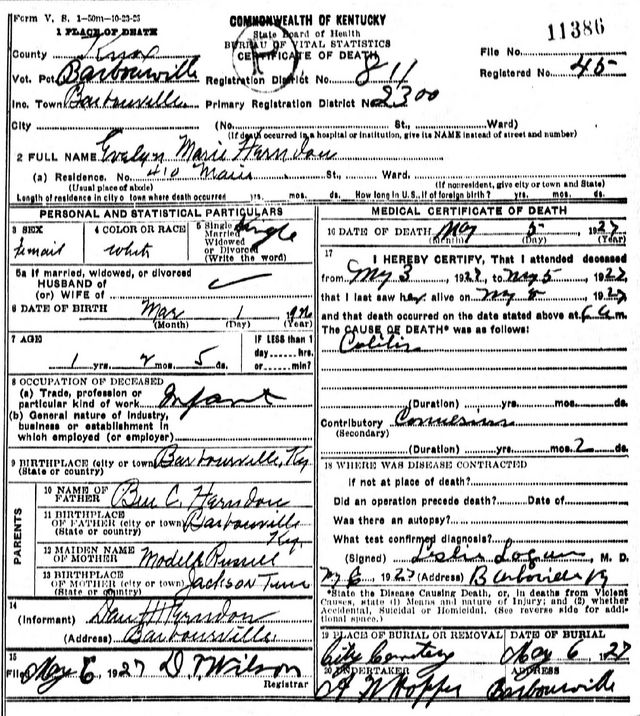 Form V. S. 1-50m-10-23-25
COMMONWEALTH OF KENTUCKY
State Board of Health
BUREAU OF VITAL STATISTICS
CERTIFICATE OF DEATH
11386
1 PLACE OF DEATH
County Knox
File No.
Vot. Pct Barbourville Registration District No. 811
Registered No. 45
Inc. Town Barbourville Primary Registration District No. 2300
City (No. St., Ward)
(If death occurred in a hospital or institution, give its NAME instead of street and number)
2 FULL NAME Evelyn Marie Herndon
(a) Residence. No. 410 Main St., Ward.
(Usual place of abode) (If nonresident, give city or town and State)
Length of residence in city or town where death occurred yrs. mos. ds. How long in U.S., if of foreign birth? yrs. mos. ds.
PERSONAL AND STATISTICAL PARTICULARS
3 SEX
4 COLOR OR RACE White
5 Single
Married
Widowed
or Divorced
(Write the word)
Single
5a If married, widowed, or divorced
HUSBAND of
(or) WIFE of
6 DATE OF BIRTH Mar 1 1926
(Month) (Day) (Year)
7 AGE
1 yrs. 2 mos. 5 ds.
IF LESS than 1
day hrs.
or min?
8 OCCUPATION OF DECEASED
(a) Trade, profession or
particular kind of work Infant
(b) General nature of industry,
business or establishment in
which employed (or employer)
9 BIRTHPLACE (city or town) Barbourville, Ky
(State or country)
PARENTS
10 NAME OF
FATHER Ben C. Herndon
11 BIRTHPLACE
OF FATHER (city or town) Barbourville
(State or country) Ky
12 MAIDEN NAME
OF MOTHER Russell
13 BIRTHPLACE
OF MOTHER (city or town) Jackson
(State or country)
14
(Informant) Herndon
(Address) Barbourville
15
Filed May 6 1927 D. T. Wilson
Registrar
MEDICAL CERTIFICATE OF DEATH
16 DATE OF DEATH May 5 1927
(Month) (Day) (Year)
17
I HEREBY CERTIFY, That I attended deceased
from My 3, 1927, to My 5, 1927,
that I last saw her alive on My 5, 1927
and that death occurred on the date stated above at 6 a m.
The CAUSE OF DEATH* was as follows:
Colitis
(Duration) yrs. mos. ds.
Contributory
(Secondary)
(Duration) yrs. mos. 2 ds.
18 WHERE WAS DISEASE CONTRACTED
if not at place of death?
Did an operation precede death? Date of
Was there an autopsy?
What test confirmed diagnosis?
(Signed) Leslie Logan M. D.
My 6, 1927 (Address) Barbourville Ky
*State the Disease Causing Death, or, in deaths from Violent
Causes, state (1) Means and nature of Injury; and (2) whether
Accidental, Suicidal or Homicidal. (See reverse side for addi-
tional space.)
19 PLACE OF BURIAL OR REMOVAL
City Cemetery
DATE OF BURIAL
May 6 1927
20 UNDERTAKER
Hopper
ADDRESS
Barbourville